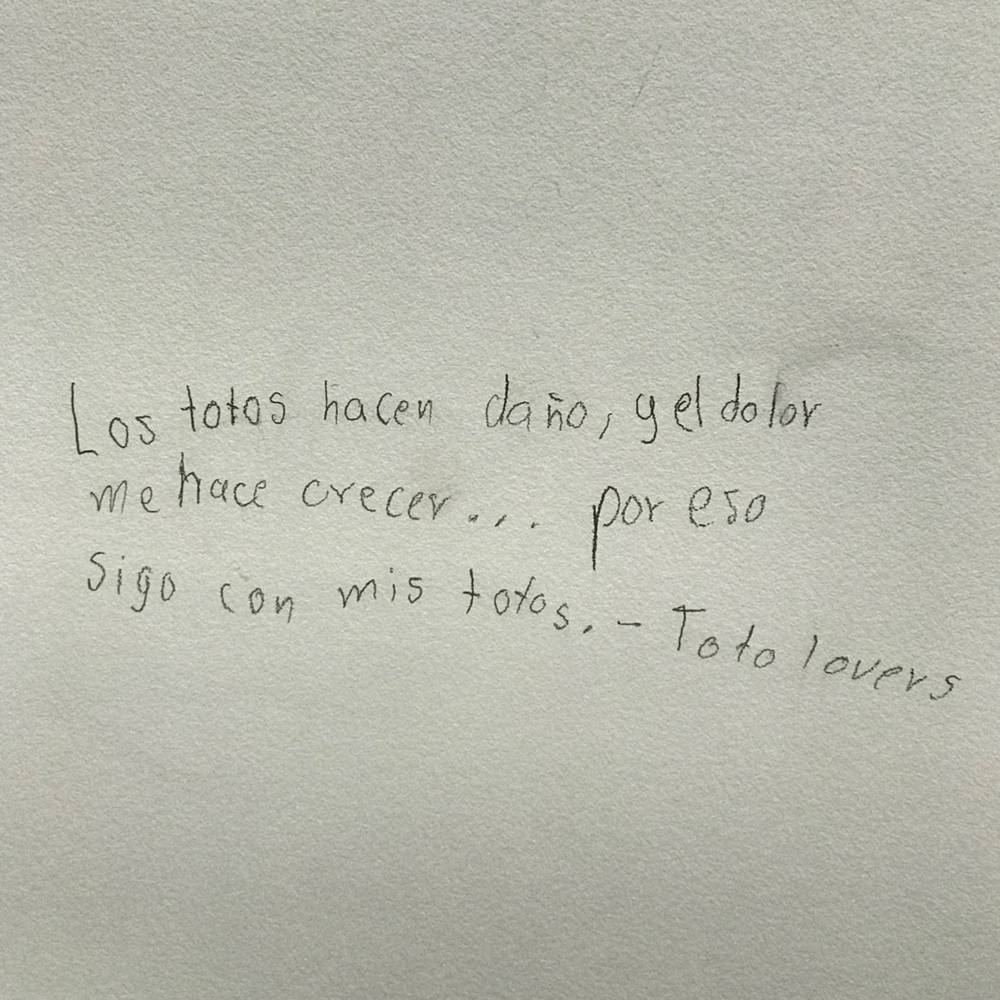 Los totos hacen daño, y el dolor
me hace crecer... por eso
sigo con mis totos. - Toto lovers